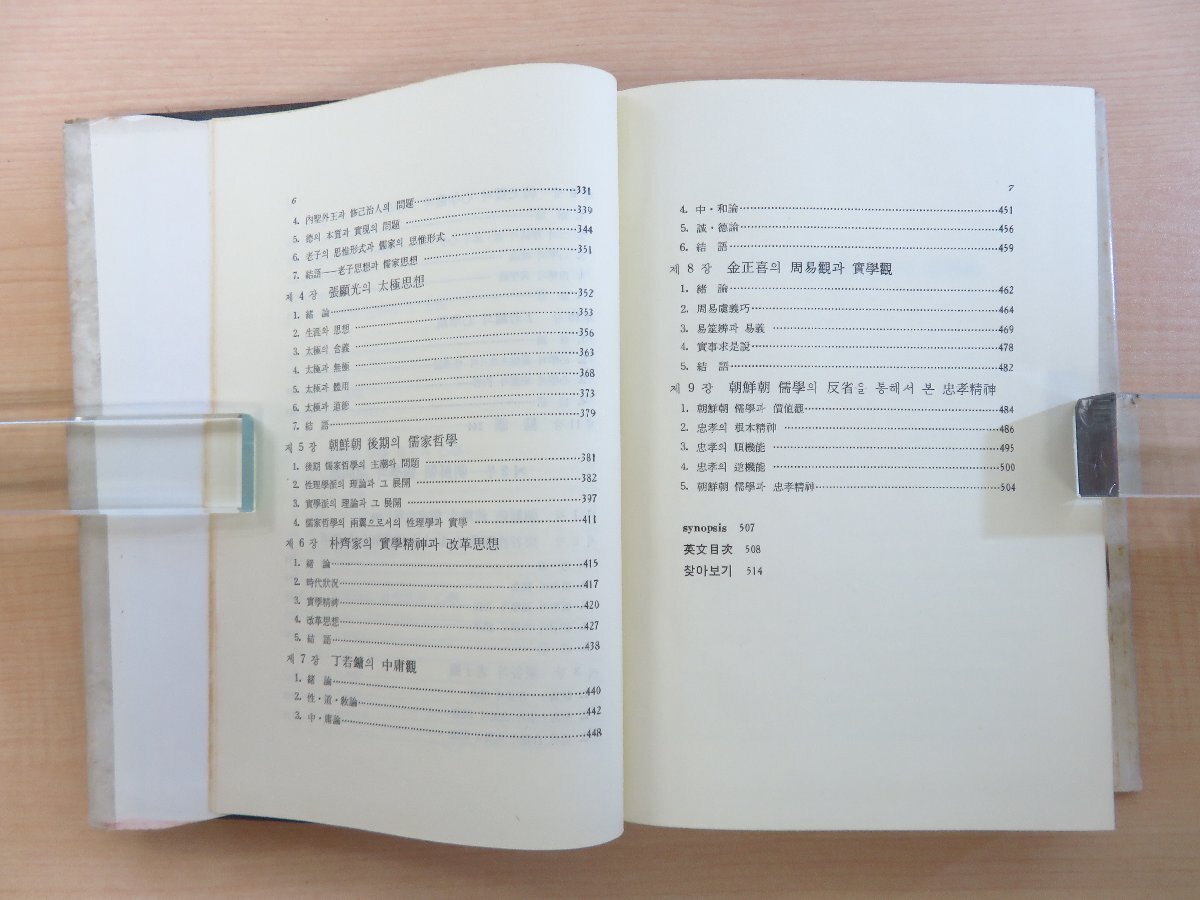 6
4. 內聖外王과 修己治人의 問題 331
5. 德의 本質과 實現의 問題 339
6. 老子의 思惟形式과 儒家의 思惟形式 344
7. 結語——老子思想과 儒家思想 351
제 4 장 張顯光의 太極思想
1. 緖 論 352
2. 生涯와 思想 353
3. 太極의 含義 356
4. 太極과 無極 363
5. 太極과 體用 368
6. 太極과 道德 373
7. 結 語 379
제 5 장 朝鮮朝 後期의 儒家哲學
1. 後期 儒家哲學의 主潮와 問題 381
2. 性理學派의 理論과 그 展開 382
3. 實學派의 理論과 그 展開 397
4. 儒家哲學의 兩翼으로서의 性理學과 實學 411
제 6 장 朴齊家의 實學精神과 改革思想
1. 緖 論 415
2. 時代狀況 417
3. 實學精神 420
4. 改革思想 427
5. 結 語 438
제 7 장 丁若鏞의 中庸觀
1. 緖 論 440
2. 性·道·敎論 442
3. 中·庸論 448
7
4. 中·和論 451
5. 誠·德論 456
6. 結 語 459
제 8 장 金正喜의 周易觀과 實學觀
1. 緖 論 462
2. 周易虞義巧 464
3. 易筮辨과 易義 469
4. 實事求是說 478
5. 結 語 482
제 9 장 朝鮮朝 儒學의 反省을 통해서 본 忠孝精神
1. 朝鮮朝 儒學과 價値觀 484
2. 忠孝의 根本精神 486
3. 忠孝의 順機能 495
4. 忠孝의 逆機能 500
5. 朝鮮朝 儒學과 忠孝精神 504
synopsis 507
英文目次 508
찾아보기 514